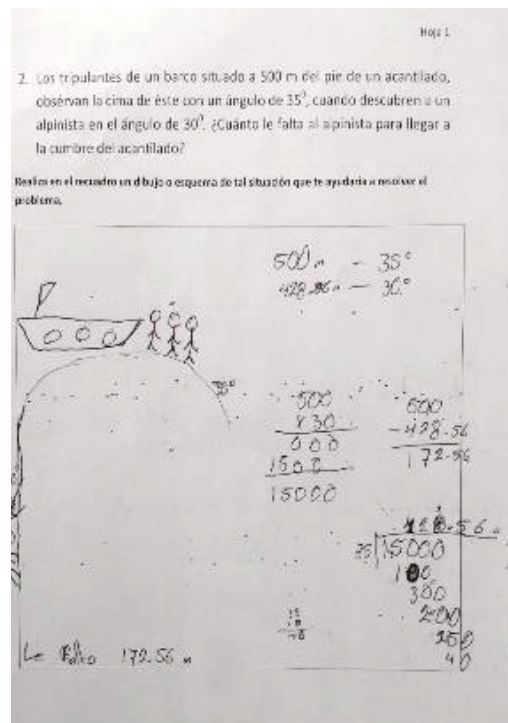 Hoja 1
2. Los tripulantes de un barco situado a 500 m del pie de un acantilado,
observan la cima de éste con un ángulo de 35⁰, cuando descubren a un
alpinista en el ángulo de 30⁰. ¿Cuánto le falta al alpinista para llegar a
la cumbre del acantilado?
Realiza en el recuadro un dibujo o esquema de tal situación que te ayudaría a resolver el
problema.
500 m - 35°
428.56 m - 30°
30°
500
x 30
000
1500
15000
500
-428.56
172.56
428.56 m
35 15000
100
300
200
250
40
Le Falto 172.56 m